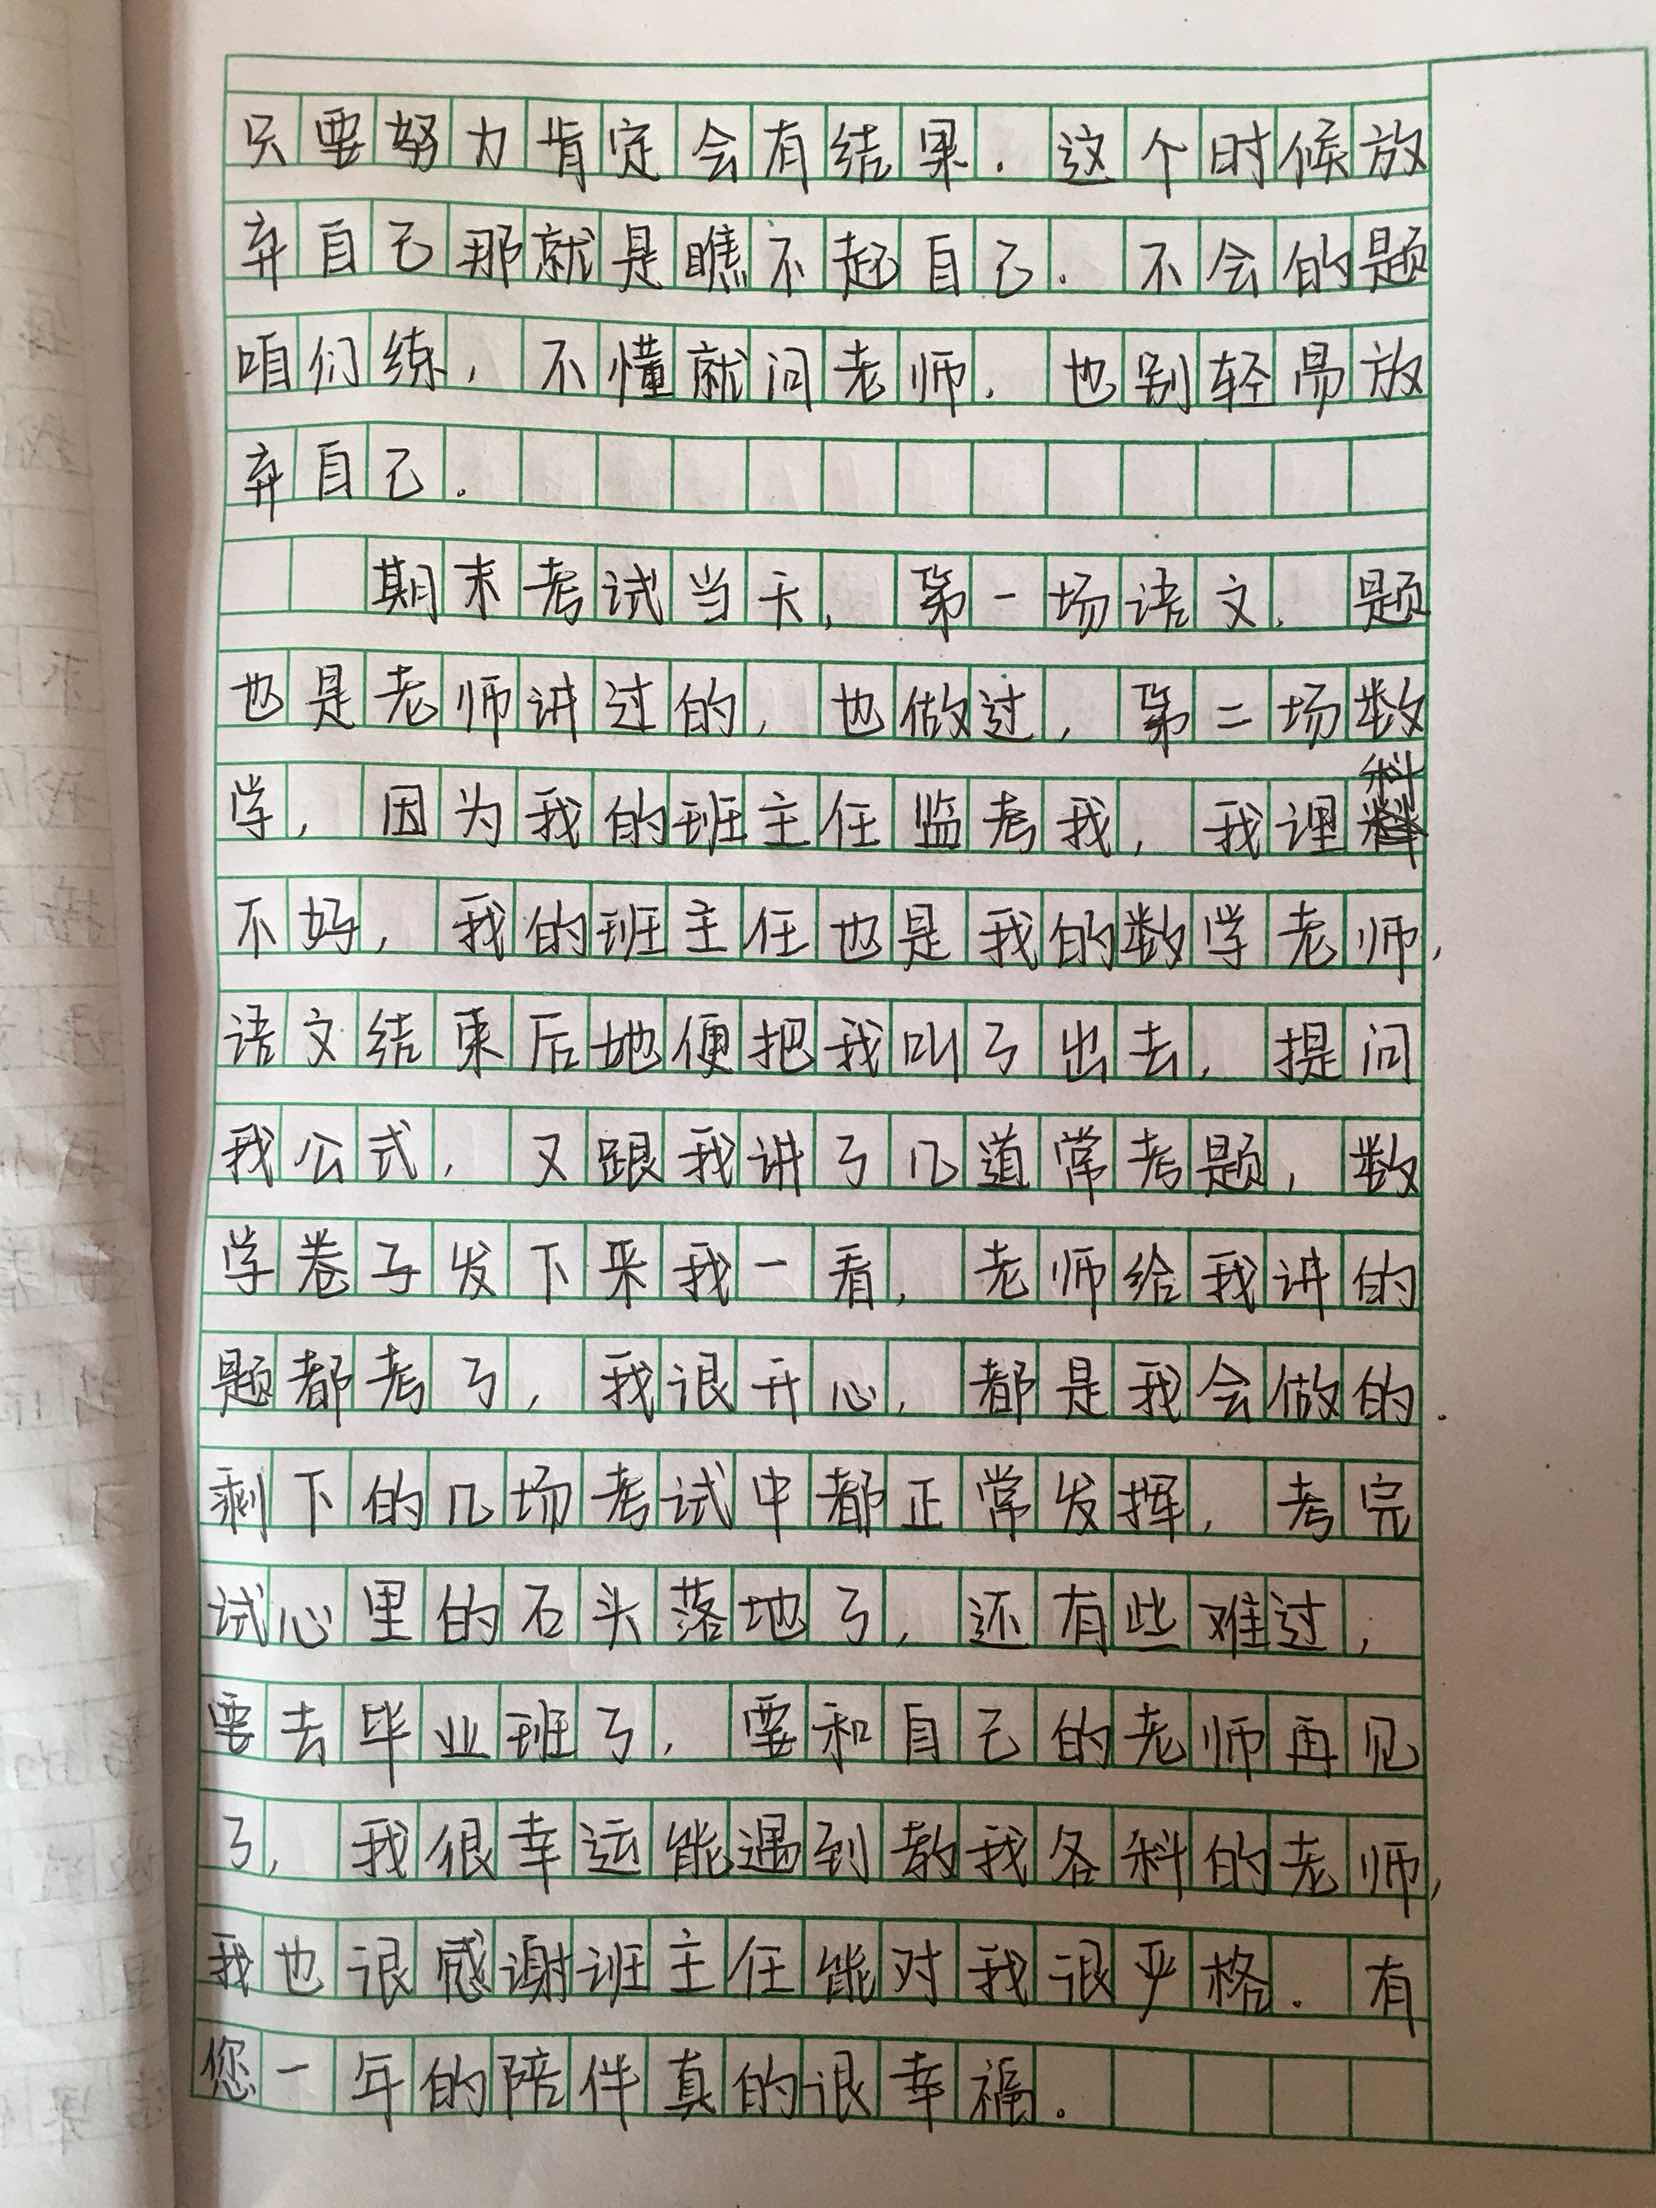 只要努力肯定会有结果.这个时候放
弃自己那就是瞧不起自己.不会的题
咱们练,不懂就问老师.也别轻易放
弃自己.
期末考试当天,第一场语文.题
也是老师讲过的,也做过,第二场数
学,因为我的班主任监考我,我理科
不好,我的班主任也是我的数学老师,
语文结束后她便把我叫了出去,提问
我公式,又跟我讲了几道常考题,数
学卷子发下来我一看,老师给我讲的
题都考了,我很开心,都是我会做的.
剩下的几场考试中都正常发挥,考完
试心里的石头落地了,还有些难过,
要去毕业班了,要和自己的老师再见
了,我很幸运能遇到教我各科的老师,
我也很感谢班主任能对我很严格.有
您一年的陪伴真的很幸福.